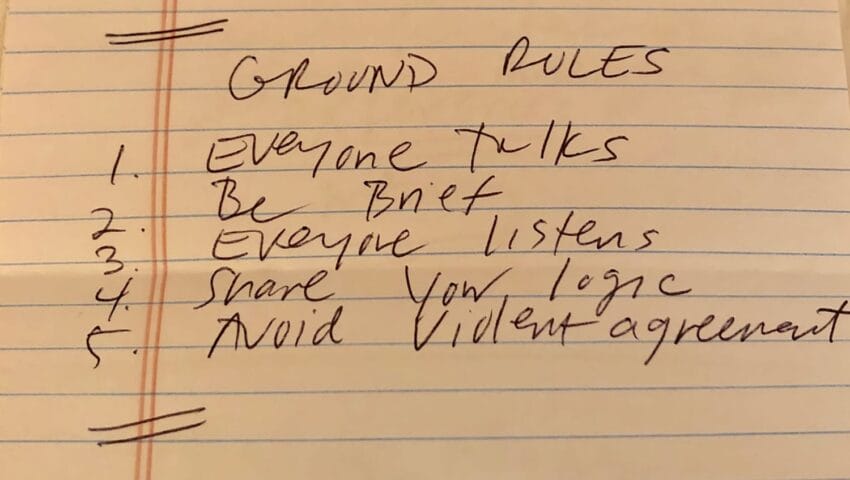 GROUND RULES
1. Everyone talks
2. Be Brief
3. Everyone listens
4. Share your logic
5. Avoid Violent agreement